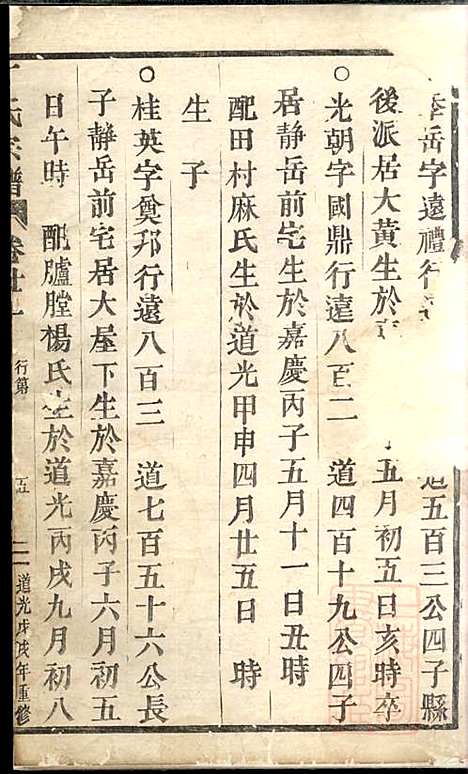 季岳字遠禮行 道五百三公四子縣
後派居大黃生於 五月初五日亥時卒
○光朝字國鼎行遠八百二 道四百十九公四子
居静岳前宅生於嘉慶丙子五月十一日丑時
配田村麻氏生於道光甲申四月廿五日 時
生子
○桂英字奠邦行遠八百三 道七百五十六公長
子靜岳前宅居大屋下生於嘉慶丙子六月初五
日午時 配臚膛楊氏生於道光丙戌九月初八
氏宗譜 卷廿 行第 五 道光戊戌年重修